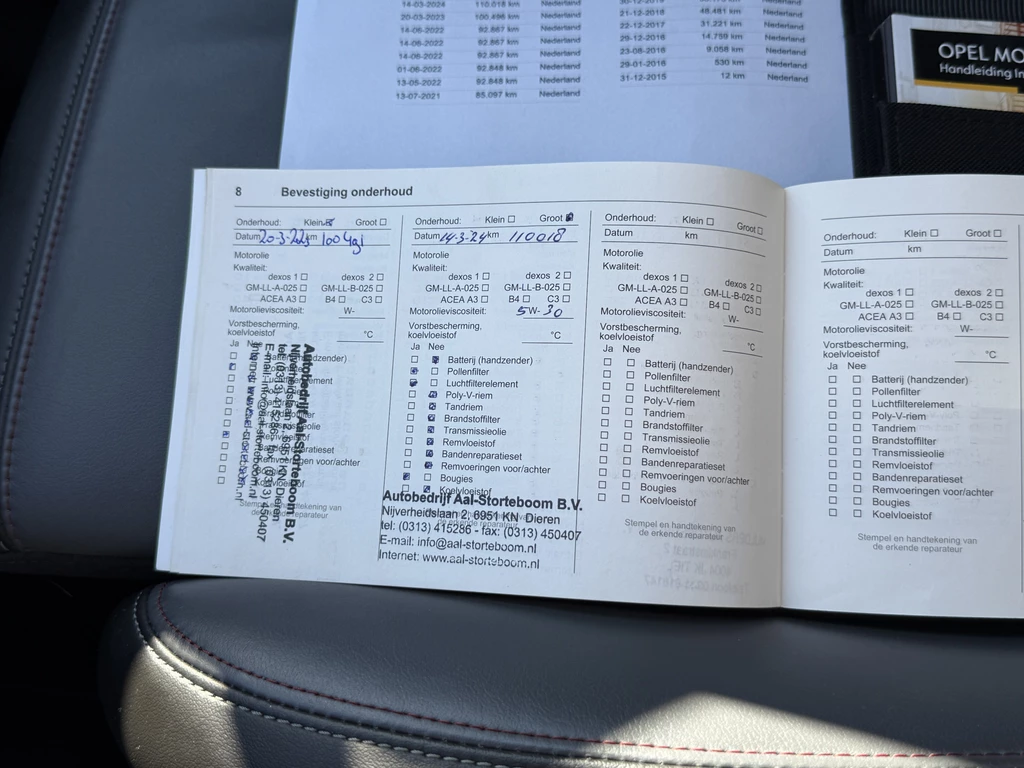 14-03-2024 110.018 km Nederland
20-03-2023 100.496 km Nederland
14-06-2022 92.867 km Nederland
14-06-2022 92.867 km Nederland
14-06-2022 92.867 km Nederland
01-06-2022 92.848 km Nederland
13-05-2022 92.848 km Nederland
13-07-2021 85.097 km Nederland
21-12-2018 48.481 km Nederland
22-12-2017 31.221 km Nederland
29-12-2016 14.799 km Nederland
23-08-2016 9.058 km Nederland
29-01-2016 530 km Nederland
31-12-2015 12 km Nederland
OPEL MO
Handleiding In
8 Bevestiging onderhoud
Onderhoud: Klein Groot
Datum km
Motorolie
Kwaliteit:
dexos 1 dexos 2
GM-LL-A-025 GM-LL-B-025
ACEA A3 B4 C3
Motorolieviscositeit: W-
Vorstbescherming,
koelvloeistof °C
Ja Nee
Autobedrijf Aal-Storteboom B.V.
Nijverheidslaan 2, 6951 KN Dieren
tel: (0313) 415286 - fax: (0313) 450407
E-mail: info@aal-storteboom.nl
Internet: www.aal-storteboom.nl
Onderhoud: Klein Groot
Datum 14-3-24 km 110018
Motorolie
Kwaliteit:
dexos 1 dexos 2
GM-LL-A-025 GM-LL-B-025
ACEA A3 B4 C3
Motorolieviscositeit: 5W-30
Vorstbescherming,
koelvloeistof °C
Ja Nee
Batterij (handzender)
Pollenfilter
Luchtfilterelement
Poly-V-riem
Tandriem
Brandstoffilter
Transmissieolie
Remvloeistof
Bandenreparatieset
Remvoeringen voor/achter
Bougies
Koelvloeistof
Autobedrijf Aal-Storteboom B.V.
Nijverheidslaan 2, 6951 KN Dieren
tel: (0313) 415286 - fax: (0313) 450407
E-mail: info@aal-storteboom.nl
Internet: www.aal-storteboom.nl
Onderhoud: Klein Groot
Datum km
Motorolie
Kwaliteit:
dexos 1 dexos 2
GM-LL-A-025 GM-LL-B-025
ACEA A3 B4 C3
Motorolieviscositeit: W-
Vorstbescherming,
koelvloeistof °C
Ja Nee
Batterij (handzender)
Pollenfilter
Luchtfilterelement
Poly-V-riem
Tandriem
Brandstoffilter
Transmissieolie
Remvloeistof
Bandenreparatieset
Remvoeringen voor/achter
Bougies
Koelvloeistof
Stempel en handtekening van
de erkende reparateur
Onderhoud: Klein Groot
Datum km
Motorolie
Kwaliteit:
dexos 1 dexos 2
GM-LL-A-025 GM-LL-B-025
ACEA A3 B4 C3
Motorolieviscositeit: W-
Vorstbescherming,
koelvloeistof °C
Ja Nee
Batterij (handzender)
Pollenfilter
Luchtfilterelement
Poly-V-riem
Tandriem
Brandstoffilter
Transmissieolie
Remvloeistof
Bandenreparatieset
Remvoeringen voor/achter
Bougies
Koelvloeistof
Stempel en handtekening van
de erkende reparateur